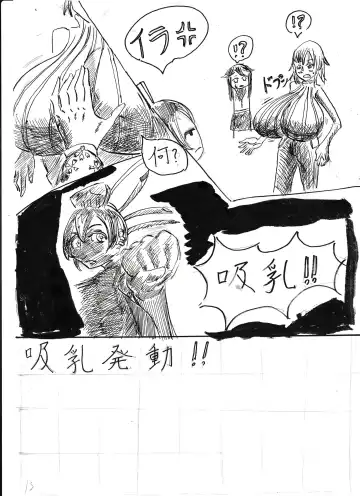 !?
!?
ドプッ
イラ
何?
吸乳!!
吸乳発動!!
13